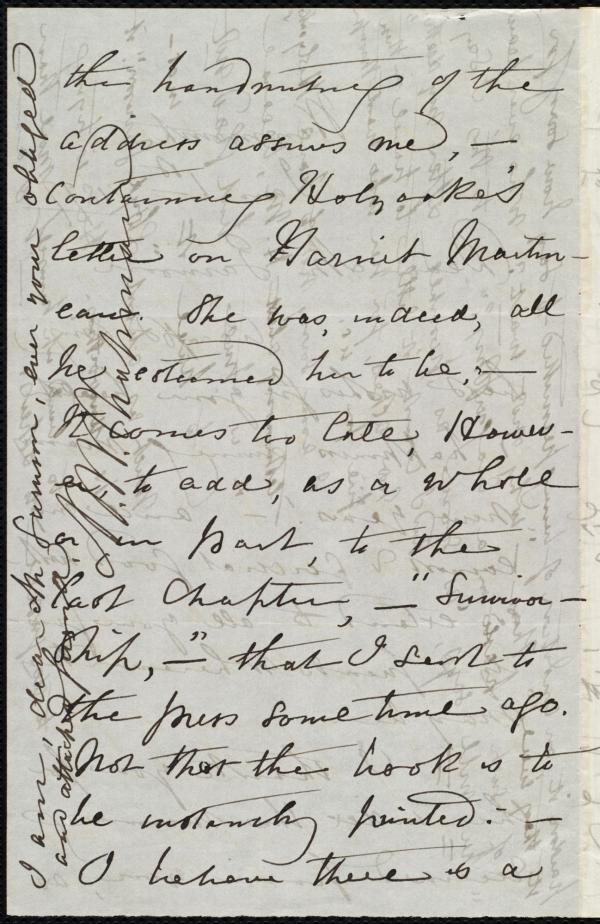 the handwriting of the
address assures me, —
containing Holyoake's
letter on Harriet Martin-
eau. She was, indeed, all
he esteemed her to be; —
It comes too late, Howev-
er, to add, as a whole
or in part, to the
last Chapter, — "Survivor-
ship," — that I sent to
the press some time ago.
Not that the book is to
be instantly printed: —
I believe there is a
I am, dear Mr Garrison, ever your obliged
and attached friend,